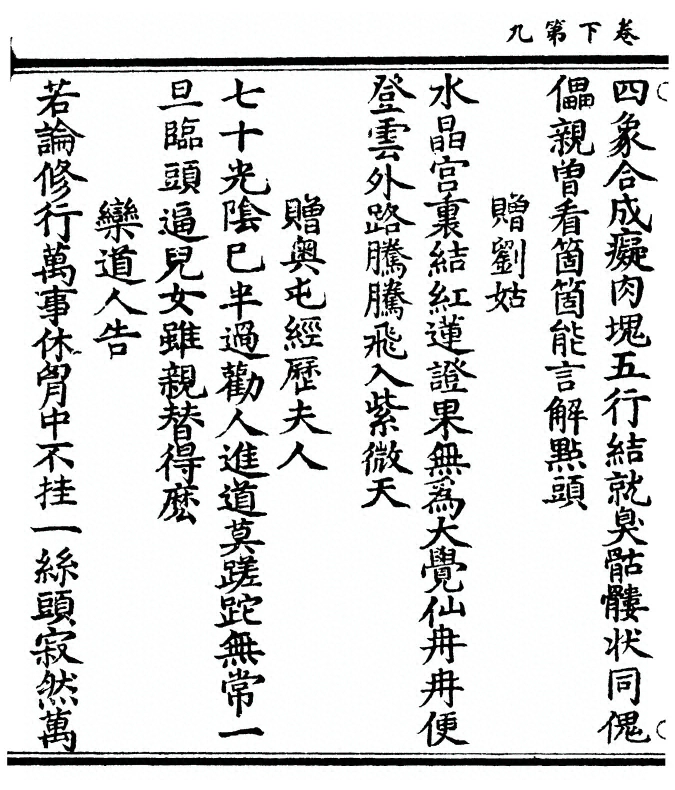 卷下第九
四象合成癡肉塊五行結就臭骷髏狀同傀
儡親曾看箇箇能言解點頭
贈劉姑
水晶宫裏結紅蓮證果無爲大覺仙冉冉便
登雲外路騰騰飛入紫微天
贈奧屯經歷夫人
七十光陰巳半過勸人進道莫蹉跎無常一
旦臨頭逼兒女雖親替得麽
欒道人告
若論修行萬事休胷中不挂一絲頭寂然萬